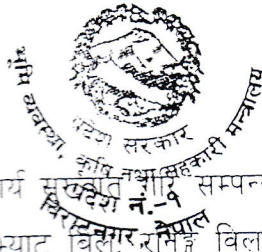 भूमि व्यवस्था, कृषि तथा सहकारी मन्त्रालय
प्रदेश सरकार
प्रदेश नं.-१
विराटनगर, नेपाल
र्य सम्पन्
भ्याट विल, विल